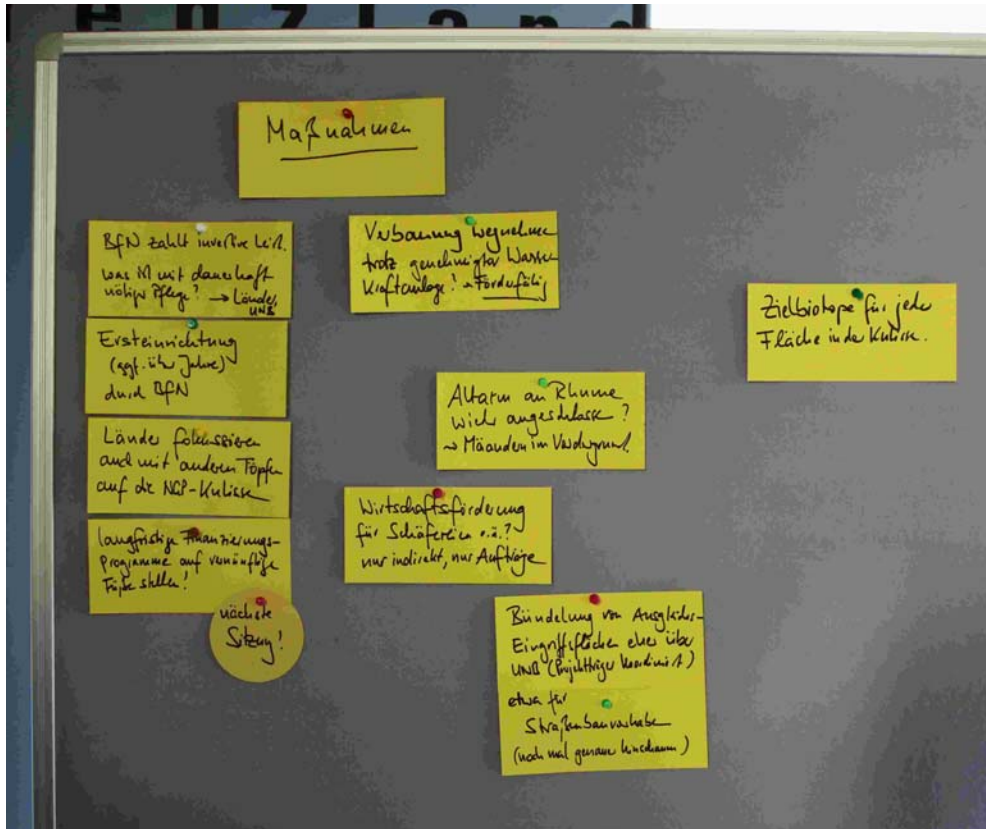 enzland
Maßnahmen
BfN zahlt investive Leist.
was ist mit dauerhaft
nötiger Pflege? → Länder,
UNB
Ersteinrichtung
(ggf. über Jahre)
durch BfN
Länder fokussieren
auch mit anderen Töpfen
auf die NGP-Kulisse
langfristige Finanzierungs-
Programme auf vernünftige
Füße stellen!
nächste
Sitzung!
Verbauung wegnehmen
trotz genehmigter Wasser
Kraftanlage! → Förderfähig
Altarm an Rhume
wieder angeschlossen?
→ Mäandern im Vordergrund.
Wirtschaftsförderung
für Schäfereien o.ä.?
nur indirekt, nur Aufträge
Bündelung von Ausgleichs-
Eingriffsflächen eher über
UNB (Projektträger koordiniert)
etwa für
Straßenbauvorhaben
(noch mal genauer hinschauen)
Zielbiotope für jede
Fläche in der Kulisse.